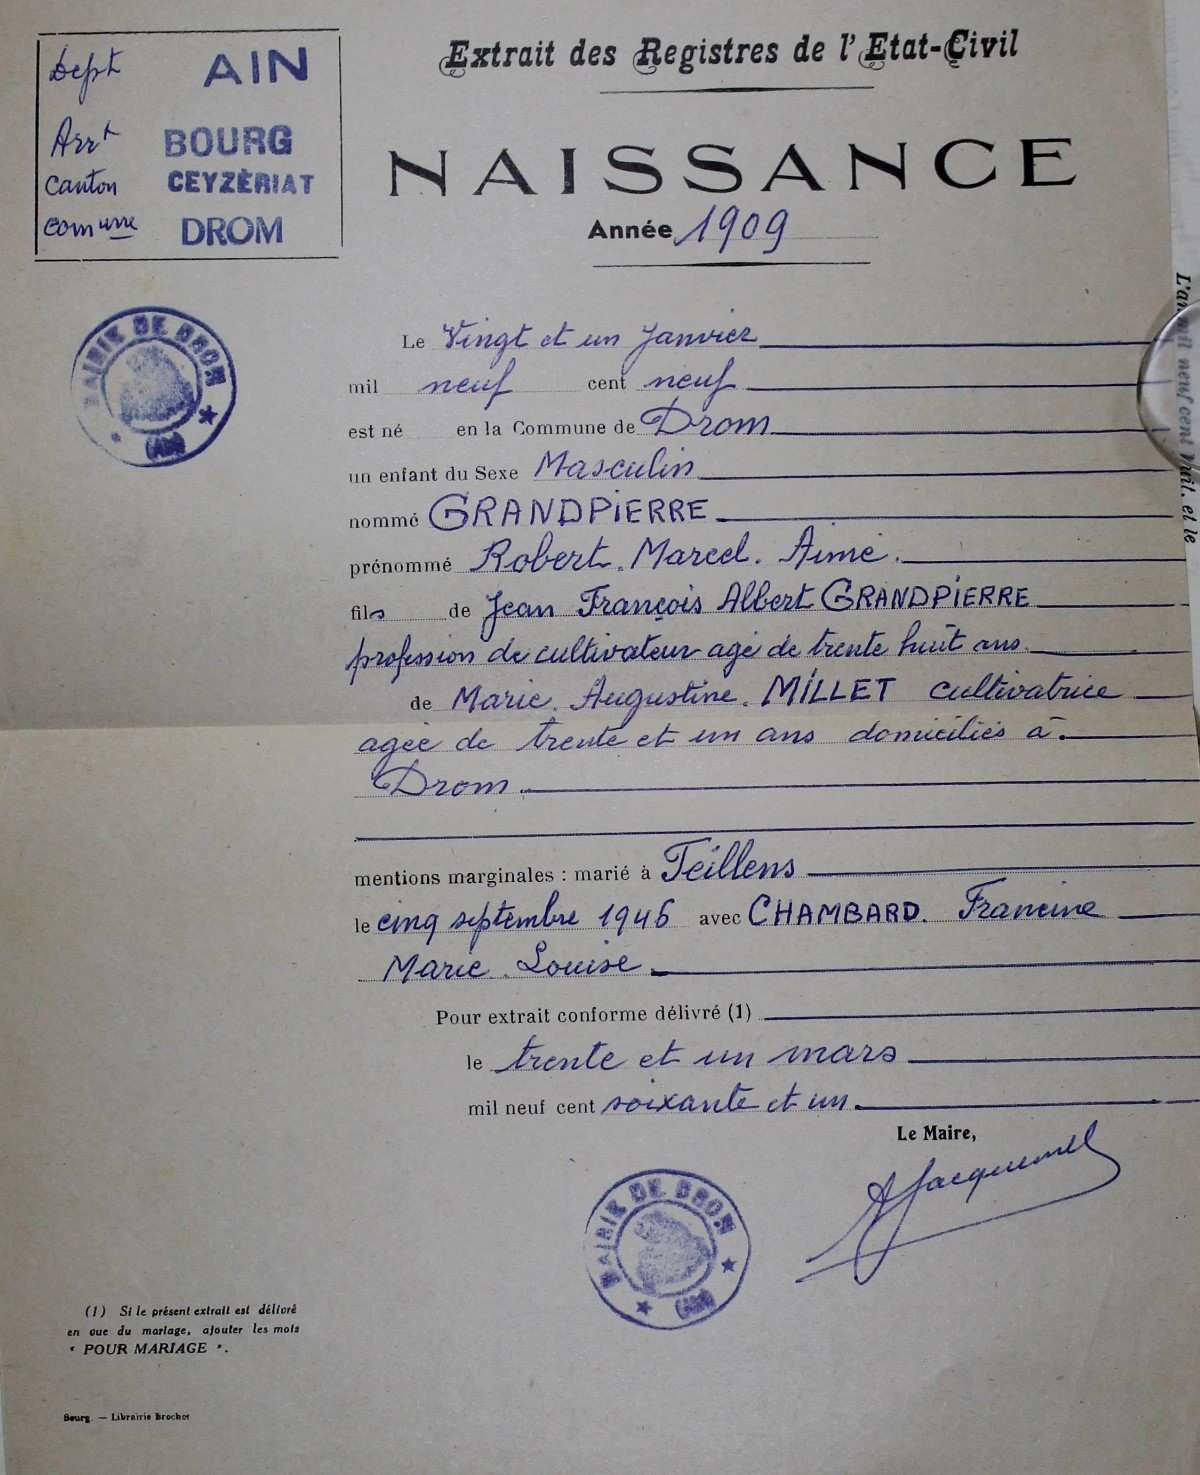 Dept AIN
Arrt BOURG
Canton CEYZÈRIAT
Commune DROM
Extrait des Registres de l'Etat-Civil
NAISSANCE
Année 1909
MAIRIE DE DROM
(AIN)
Le Vingt et un Janvier
mil neuf cent neuf
est né en la Commune de Drom
un enfant du Sexe Masculin
nommé GRANDPIERRE
prénommé Robert. Marcel. Aimé.
fils de Jean François Albert GRANDPIERRE
profession de cultivateur agé de trente huit ans.
de Marie. Augustine. MILLET cultivatrice
agée de trente et un ans domiciliés à.
Drom
mentions marginales : marié à Teillens
le cinq septembre 1946 avec CHAMBARD. Francine
Marie. Louise
Pour extrait conforme délivré (1)
le trente et un mars
mil neuf cent soixante et un
Le Maire,
A Jacquemet
MAIRIE DE DROM
(AIN)
(1) Si le présent extrait est délivré
en vue du mariage, ajouter les mots
" POUR MARIAGE ".
Bourg. — Librairie Brochot
L'an mil neuf cent huit, et le